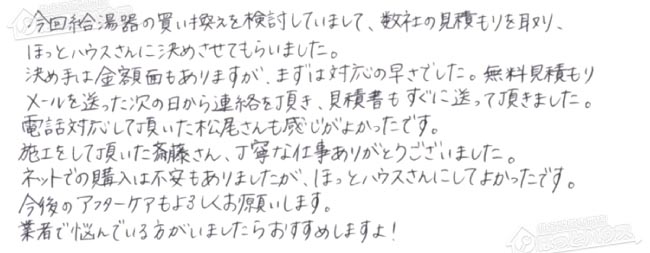 今回給湯器の買い換えを検討していまして、数社の見積もりを取り、
ほっとハウスさんに決めさせてもらいました。
決め手は金額面もありますが、まずは対応の早さでした。無料見積もり
メールを送った次の日から連絡を頂き、見積書もすぐに送って頂きました。
電話対応して頂いた松尾さんも感じがよかったです。
施工をして頂いた斎藤さん、丁寧な仕事ありがとうございました。
ネットでの購入は不安もありましたが、ほっとハウスさんにしてよかったです。
今後のアフターケアもよろしくお願いします。
業者で悩んでいる方がいましたらおすすめしますよ!